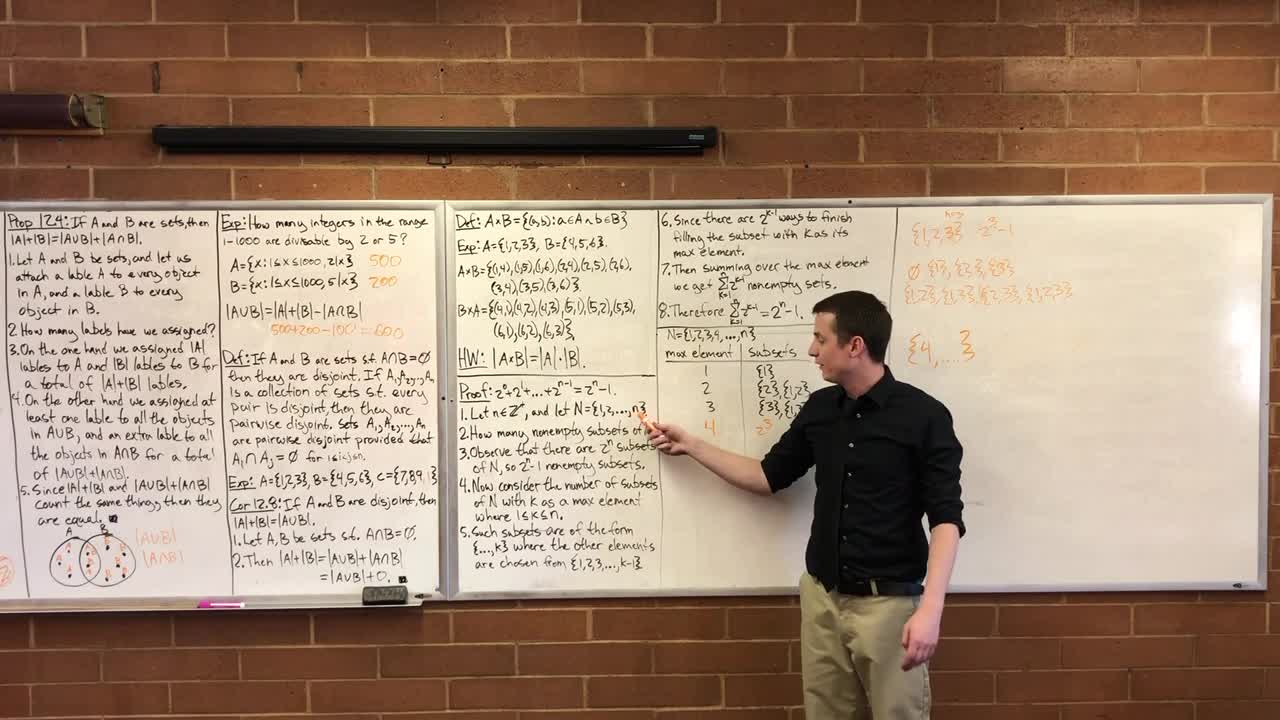 Prop 12.4: If A and B are sets, then
|A|+|B|=|A∪B|+|A∩B|.
1. Let A and B be sets, and let us
attach a lable A to every object
in A, and a lable B to every
object in B.
2. How many labels have we assigned?
3. On the one hand we assigned |A|
lables to A and |B| lables to B for
a total of |A|+|B| lables.
4. On the other hand we assigned at
least one lable to all the objects
in A∪B, and an extra lable to all
the objects in A∩B for a total
of |A∪B|+|A∩B|
5. Since |A|+|B| and |A∪B|+|A∩B|
count the same things, then they
are equal.
A B
|A∪B|
|A∩B|
Exp: How many integers in the range
1-1000 are divisable by 2 or 5?
A={x: 1≤x≤1000, 2|x} 500
B={x: 1≤x≤1000, 5|x} 200
|A∪B|=|A|+|B|-|A∩B|
500+200-100=600
Def: If A and B are sets s.t. A∩B=∅
then they are disjoint. If A₁,A₂,...,Aₙ
is a collection of sets s.t. every
pair is disjoint, then they are
pairwise disjoint. Sets A₁,A₂,...,Aₙ
are pairwise disjoint provided that
Aᵢ∩Aⱼ=∅ for 1≤i<j≤n.
Exp: A={1,2,3}, B={4,5,6}, C={7,8,9,
Cor 12.8: If A and B are disjoint, then
|A|+|B|=|A∪B|.
1. Let A,B be sets s.t. A∩B=∅.
2. Then |A|+|B|=|A∪B|+|A∩B|
=|A∪B|+0.
Def: A×B={(a,b): a∈A∧b∈B}
Exp: A={1,2,3}, B={4,5,6}.
A×B={(1,4),(1,5),(1,6),(2,4),(2,5),(2,6),
(3,4),(3,5),(3,6)}.
B×A={(4,1),(4,2),(4,3),(5,1),(5,2),(5,3),
(6,1),(6,2),(6,3)},
HW: |A×B|=|A|·|B|.
Proof: 2⁰+2¹+...+2ⁿ⁻¹=2ⁿ-1.
1. Let n∈ℤ⁺, and let N={1,2,...,n}
2. How many nonempty subsets of
3. Observe that there are 2ⁿ subsets
of N, so 2ⁿ-1 nonempty subsets.
4. Now consider the number of subsets
of N with k as a max element
where 1≤k≤n.
5. Such subsets are of the form
{...,k} where the other elements
are chosen from {1,2,3,...,k-1}.
6. Since there are 2ᵏ⁻¹ ways to finish
filling the subset with k as its
max element.
7. Then summing over the max element
we get Σₖ₌₁ⁿ 2ᵏ⁻¹ nonempty sets.
8. Therefore Σₖ₌₁ⁿ 2ᵏ⁻¹=2ⁿ-1.
N={1,2,3,4,...,n}
max element subsets
1 {1}
2 {2},{1,2}
3 {3},{1,
4 2³
{1,2,3} 2³-1
∅ {1},{2},{3}
{1,2},{1,3},{2,3},{1,2,3}
{4,....}